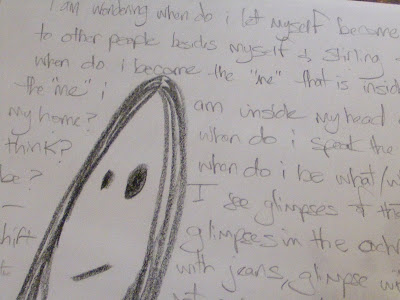 I am wondering when do i let myself become
to other people besides myself & stirling
when do i become the "me" that is insid
the "me" i am inside my head
my home? when do i speak the
think? when do i be what/w
be? I see glimpses of tha
glimpses in the
shift with jeans, glimpse wi